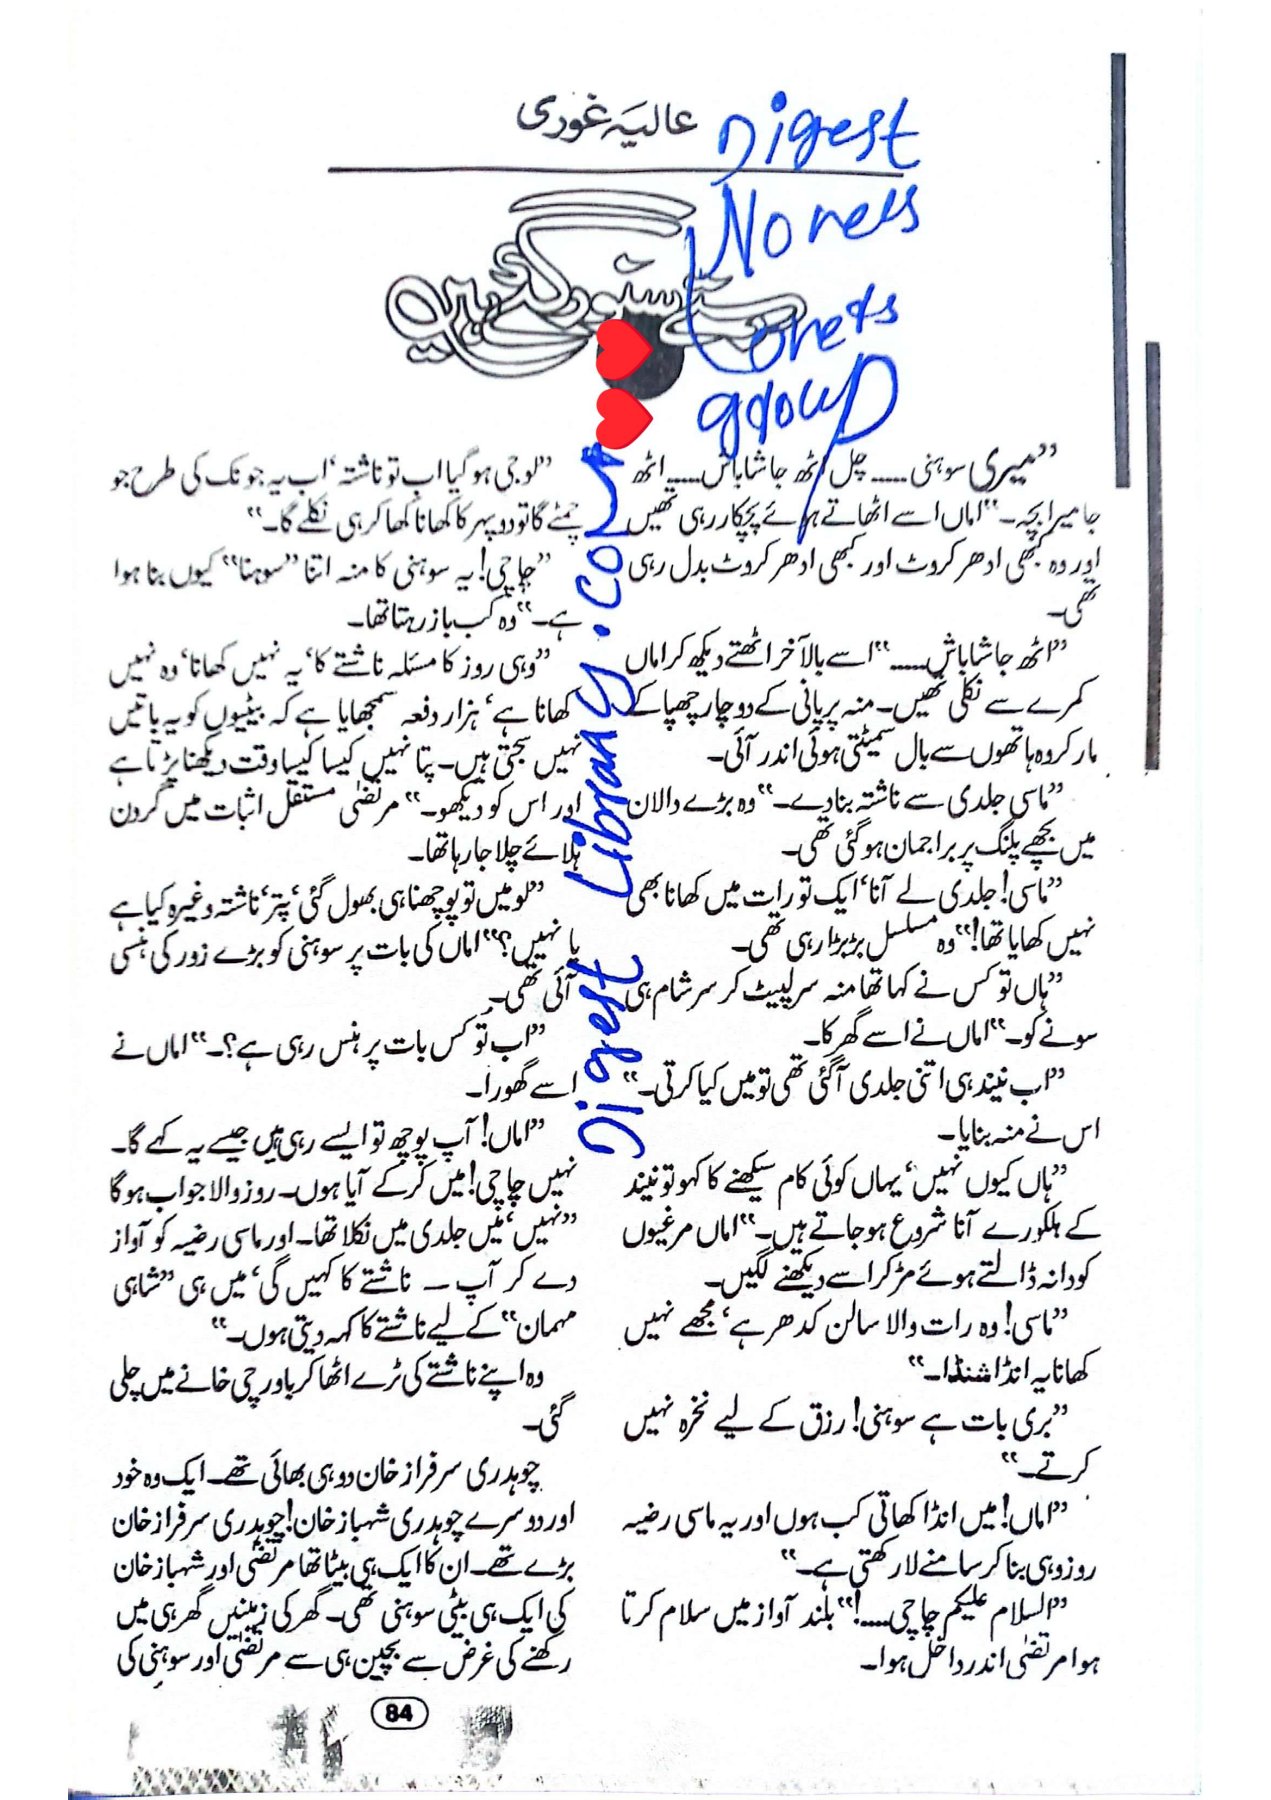 عالیہ غوری
رستے سنور گئے ہیں
Digest
Novels
Lovers
group
Digest Library.com
”میری سوہنی..... چل اٹھ جا شاباش..... اٹھ
جا میرا بچہ۔“ اماں اسے اٹھاتے ہوئے پچکار رہی تھیں
اور وہ کبھی ادھر کروٹ اور کبھی ادھر کروٹ بدل رہی
تھی۔
”اٹھ جا شاباش.....“ اسے بالآخر اٹھتے دیکھ کر اماں
کمرے سے نکلی تھیں۔ منہ پر پانی کے دو چار چھپاکے
مار کر وہ ہاتھوں سے بال سمیٹتی ہوئی اندر آئی۔
”ماسی جلدی سے ناشتہ بنا دے۔“ وہ بڑے دالان
میں بچھے پلنگ پر براجمان ہو گئی تھی۔
”ماسی! جلدی لے آنا‘ ایک تو رات میں کھانا بھی
نہیں کھایا تھا!“ وہ مسلسل بڑبڑا رہی تھی۔
”ہاں تو کس نے کہا تھا منہ سر لپیٹ کر سر شام ہی
سونے کو۔“ اماں نے اسے گھرکا۔
”اب نیند ہی اتنی جلدی آ گئی تھی تو میں کیا کرتی۔“
اس نے منہ بنایا۔
”ہاں کیوں نہیں‘ یہاں کوئی کام سیکھنے کا کہو تو نیند
کے ہلکورے آنا شروع ہو جاتے ہیں۔“ اماں مرغیوں
کو دانہ ڈالتے ہوئے مڑ کر اسے دیکھنے لگیں۔
”ماسی! وہ رات والا سالن کدھر ہے‘ مجھے نہیں
کھانا یہ انڈا شنڈا۔“
”بری بات ہے سوہنی! رزق کے لیے نخرہ نہیں
کرتے۔“
”اماں! میں انڈا کھاتی کب ہوں اور یہ ماسی رضیہ
روز وہی بنا کر سامنے لا رکھتی ہے۔“
”السلام علیکم چاچی.....!“ بلند آواز میں سلام کرتا
ہوا مرتضیٰ اندر داخل ہوا۔
”لو جی ہو گیا اب تو ناشتہ‘ اب یہ جونک کی طرح جو
چمٹے گا تو دوپہر کا کھانا کھا کر ہی نکلے گا۔“
”چاچی! یہ سوہنی کا منہ اتنا ”سوہنا“ کیوں بنا ہوا
ہے۔“ وہ کب باز رہتا تھا۔
”وہی روز کا مسئلہ ناشتے کا‘ یہ نہیں کھانا‘ وہ نہیں
کھانا ہے‘ ہزار دفعہ سمجھایا ہے کہ بیٹیوں کو یہ باتیں
نہیں سجتی ہیں۔ پتا نہیں کیسا کیسا وقت دیکھنا پڑتا ہے
اور اس کو دیکھو۔“ مرتضیٰ مستقل اثبات میں گردن
ہلائے چلا جا رہا تھا۔
”لو میں تو پوچھنا ہی بھول گئی‘ پتر‘ ناشتہ وغیرہ کیا ہے
یا نہیں؟“ اماں کی بات پر سوہنی کو بڑے زور کی ہنسی
آئی تھی۔
”اب تو کس بات پر ہنس رہی ہے؟۔“ اماں نے
اسے گھورا۔
”اماں! آپ پوچھ تو ایسے رہی ہیں جیسے یہ کہے گا۔
نہیں چاچی! میں کر کے آیا ہوں۔ روز والا جواب ہو گا
”نہیں‘ میں جلدی میں نکلا تھا۔ اور ماسی رضیہ کو آواز
دے کر آپ ـــ ناشتے کا کہیں گی‘ میں ہی ”شاہی
مہمان“ کے لیے ناشتے کا کہہ دیتی ہوں۔“
وہ اپنے ناشتے کی ٹرے اٹھا کر باورچی خانے میں چلی
گئی۔
چوہدری سرفراز خان دو ہی بھائی تھے۔ ایک وہ خود
اور دوسرے چوہدری شہباز خان! چوہدری سرفراز خان
بڑے تھے۔ ان کا ایک ہی بیٹا تھا مرتضیٰ اور شہباز خان
کی ایک ہی بیٹی سوہنی تھی۔ گھر کی زمینیں گھر ہی میں
رکھنے کی غرض سے بچپن ہی سے مرتضیٰ اور سوہنی کی
84